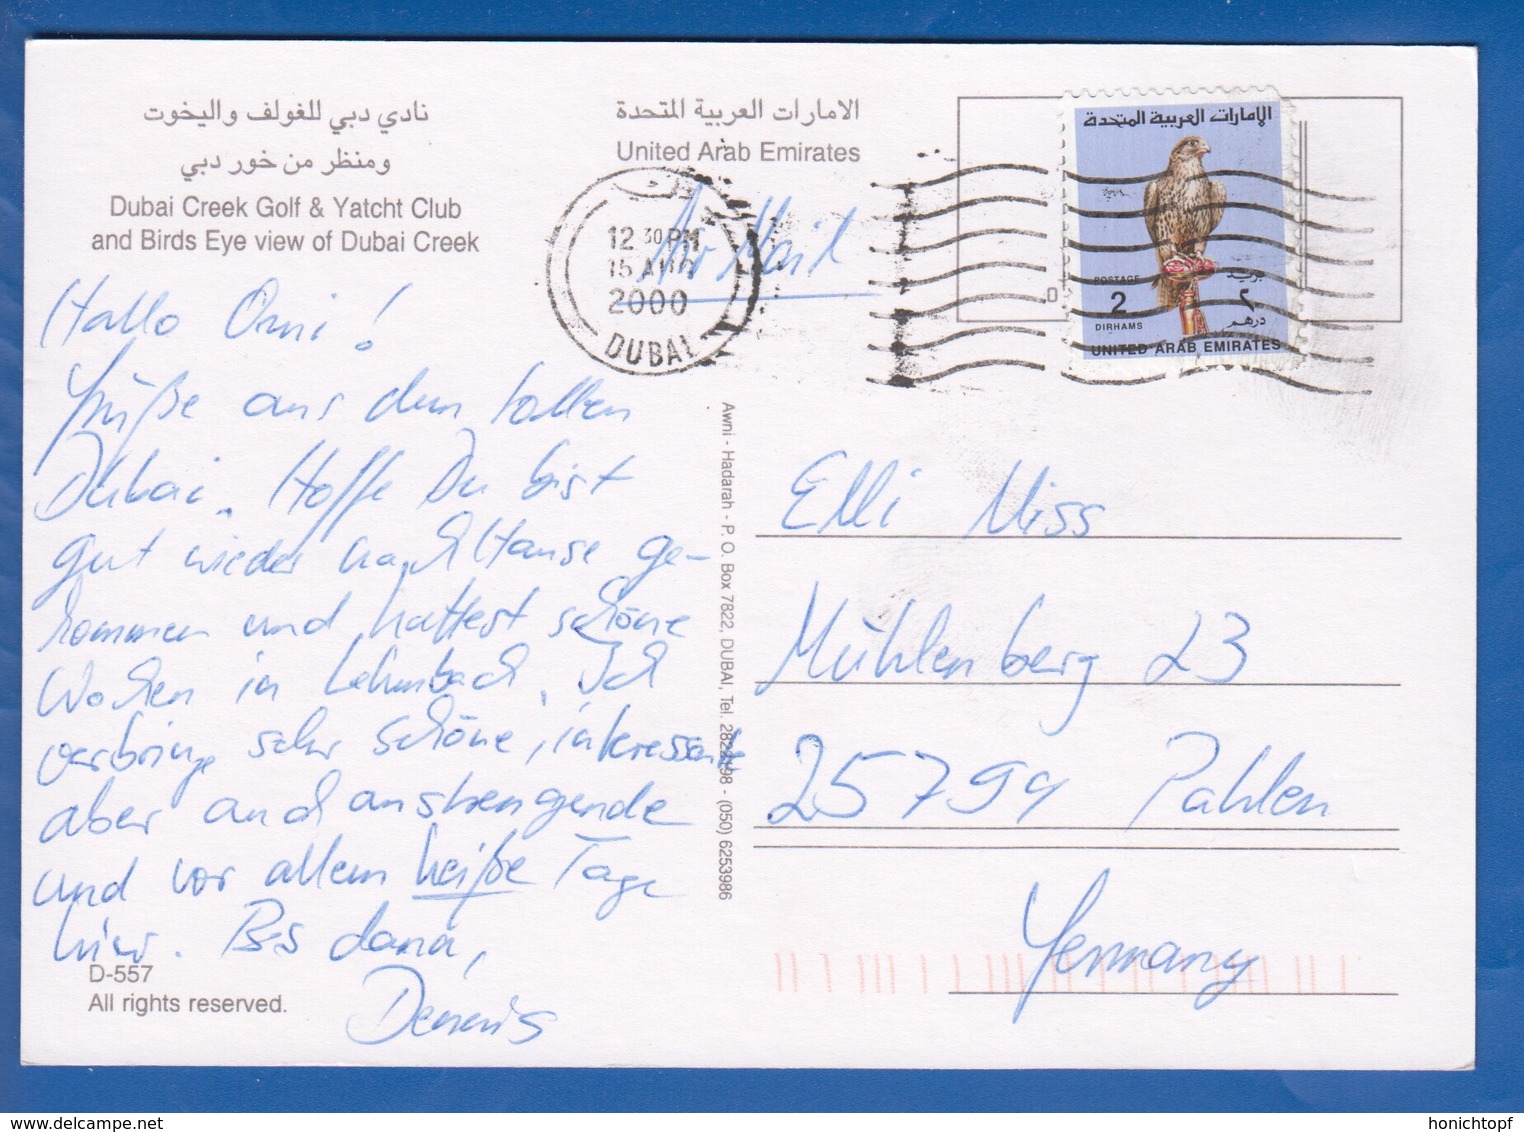 نادي دبي للغولف واليخوت
ومنظر من خور دبي
Dubai Creek Golf & Yatcht Club
and Birds Eye view of Dubai Creek
الامارات العربية المتحدة
United Arab Emirates
Air Mail
12 30 PM
15 AUG
2000
DUBAI
الإمارات العربية المتحدة
POSTAGE
بريد
2
٢
DIRHAMS
درهم
UNITED ARAB EMIRATES
Hallo Omi!
Grüße aus dem tollen
Dubai. Hoffe Du bist
gut wieder nach Hause ge-
kommen und hattest schöne
Wochen in Lehmbach. Ich
verbringe sehr schöne, interessante
aber auch anstrengende
und vor allem heiße Tage
hier. Bis dann,
Dennis
D-557
All rights reserved.
Awni - Hadarah - P. O. Box 7822, DUBAI, Tel. 2822198 - (050) 6253986
Elli Niss
Mühlenberg 23
25794 Pahlen
Germany
honichtopf